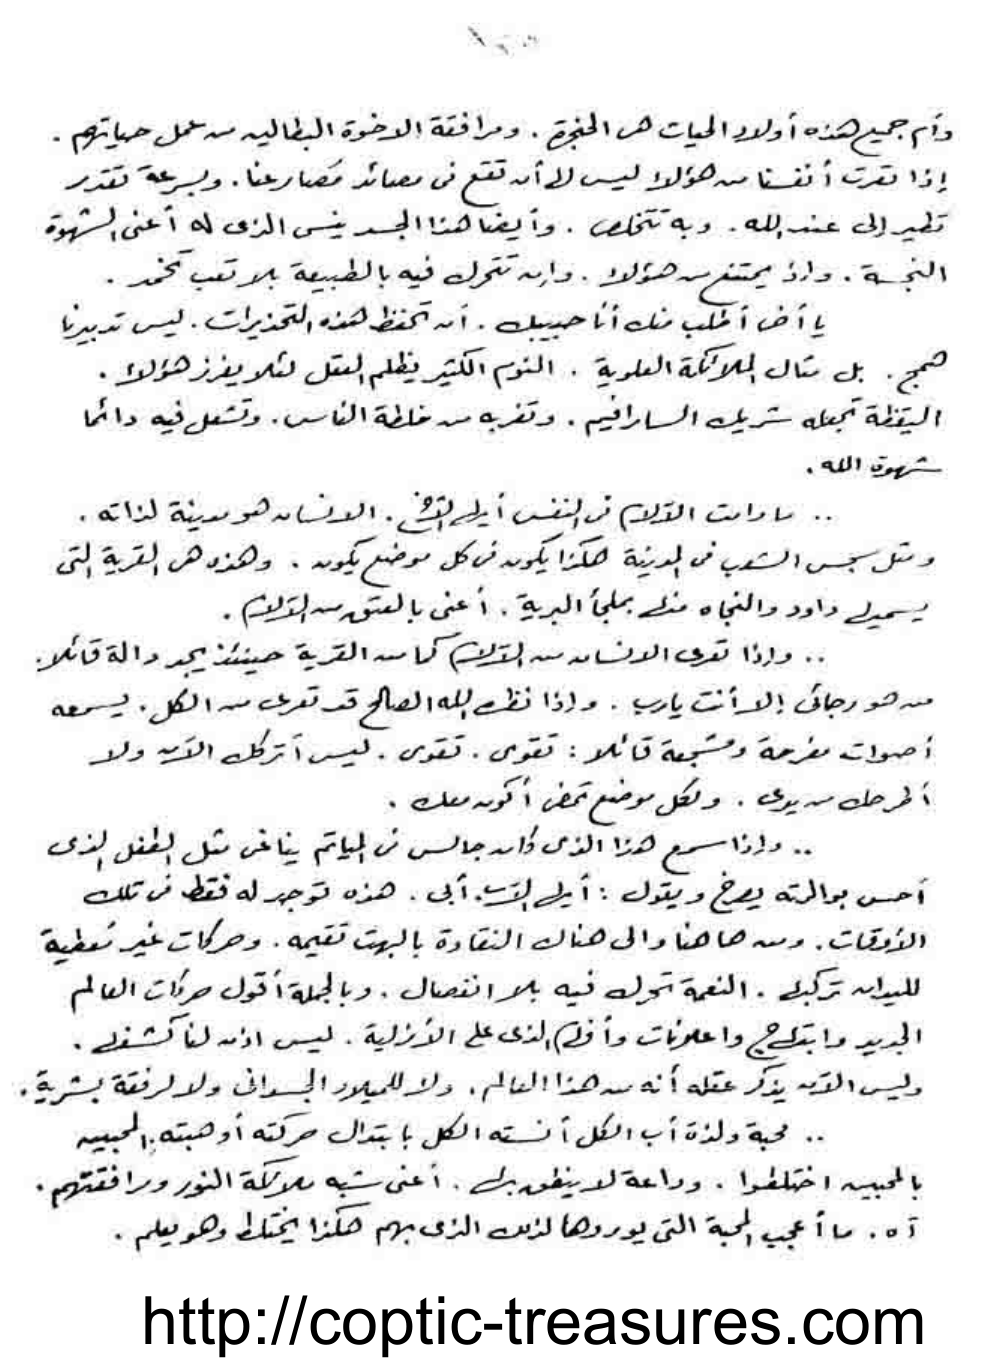 وأم جميع هذه أولاد الحيات هى الحنجرة . ومرافقة الاخوة البطالين من عمل حياتهم .
إذا تعرت أنفسنا من هؤلاء ليس لها أن تقع فى مصائد مصارعنا . وبسرعة تقدر
تطير إلى عند الله . وبه تتخلص . وأيضا هذا الجسد ينسى الذى له أعنى الشهوة
النجسة . واذ يمتنع من هؤلاء . وان تتحرك فيه بالطبيعة بلا تعب تخمد .
يا أخى أطلب منك أنا حبيبك . أن تحفظ هذه التحذيرات . ليس تدبيرنا
همج . بل مثال الملائكة العلوية . النوم الكثير يظلم العقل لئلا يفرز هؤلاء .
اليقظة تجعله شريك السارافيم . وتغربه من خلطة الناس . وتشعل فيه دائما
شهوة الله .
.. ما دامت الآلام فى النفس أيها الأخ . الانسان هو مدينة لذاته .
ومثل سجس الشعب فى المدينة هكذا يكون فى كل موضع يكون . وهذه هى القرية التى
يسميها داود والنجاه منها بملجأ البرية . أعنى بالعتق من الآلام .
.. واذا تعرى الانسان من الآلام كما من القرية حينئذ يجد دالة قائلا :
من هو رجائى إلا أنت يارب . واذا نظر الله الصالح قد تعرى من الكل . يسمعه
أصوات مفرحة ومشجعة قائلا : تقوى . تقوى . ليس أتركك الآن ولا
أطرحك من يدى . ولكل موضع تمضى أكون معك .
.. واذا سمع هذا الذى كان جالس فى المياتم يناغى مثل الطفل الذى
أحس بوالدته يصرخ ويقول : أيها الآب أبى . هذه توجد له فقط فى تلك
الأوقات . ومن هاهنا والى هناك النقاوة بالبهت تقيمه . وحركات غير معطية
للميدان تركبها . النعمة تتحرك فيه بلا انفصال . وبالجملة أقول حركات العالم
الجديد وابتهاج واعلانات وأفهام الذى على الأزلية . ليس اذن لنا كشفها .
وليس الآن يذكر عقله أنه من هذا العالم . ولا للميلاد الجسدانى ولا لرفقة بشرية .
.. محبة ولذة أب الكل أنسته الكل بابتدال حركته أوهبته . المحبين
بالمحبين اختلطوا . وداعة لا ينطق بها . أعنى شبه ملائكة النور ومرافقتهم .
آه . ما أعجب المحبة التى يوروها لذلك الذى بهم هكذا يختلط وهو يعلم .
http://coptic-treasures.com